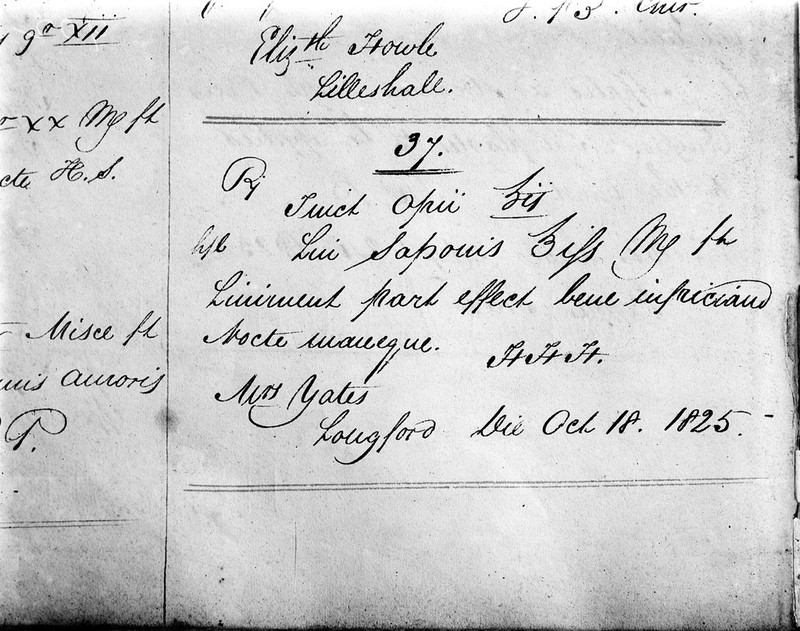 gr xii
xx M ft
H. S.
Misce ft
auroris
P.
Elizth Howle
Lilleshall.
37.
Rj Tinct Opii ʒij
Lin Saponis ʒifs M ft
Liniment part effect bene infriciand
Nocte maneque. H H H.
Mrs Yates
Longford Die Oct 18. 1825.